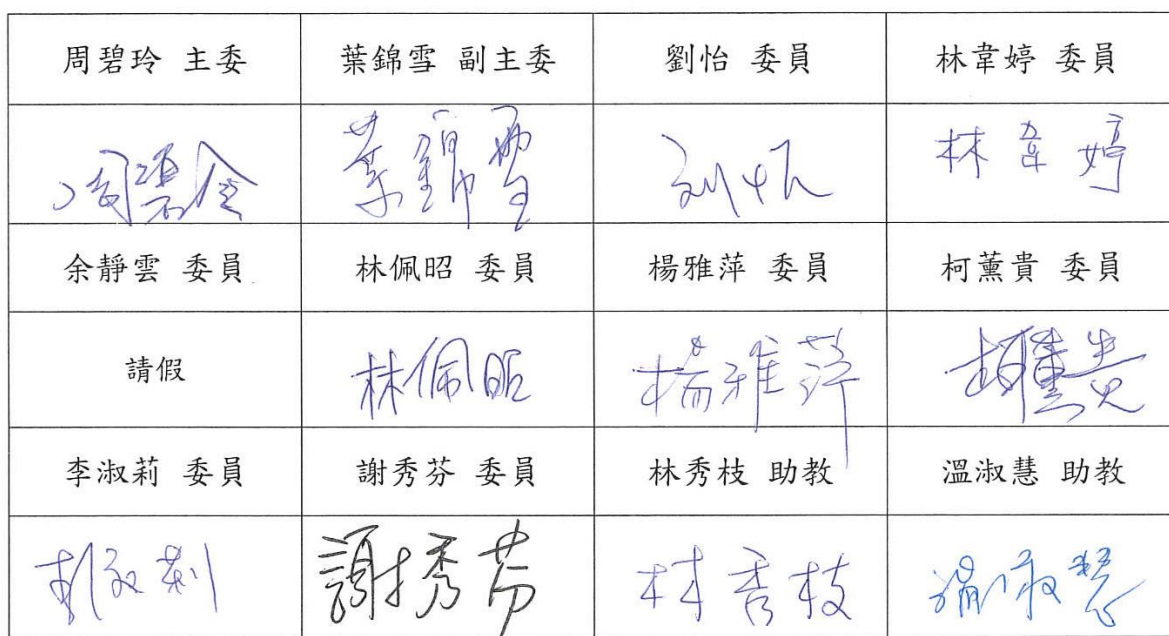 周碧玲 主委 葉錦雪 副主委 劉怡 委員 林韋婷 委員
周碧玲 葉錦雪 刘怡 林韋婷
余靜雲 委員 林佩昭 委員 楊雅萍 委員 柯薰貴 委員
請假 林佩昭 楊雅萍 柯薰貴
李淑莉 委員 謝秀芬 委員 林秀枝 助教 溫淑慧 助教
李淑莉 謝秀芬 林秀枝 溫淑慧